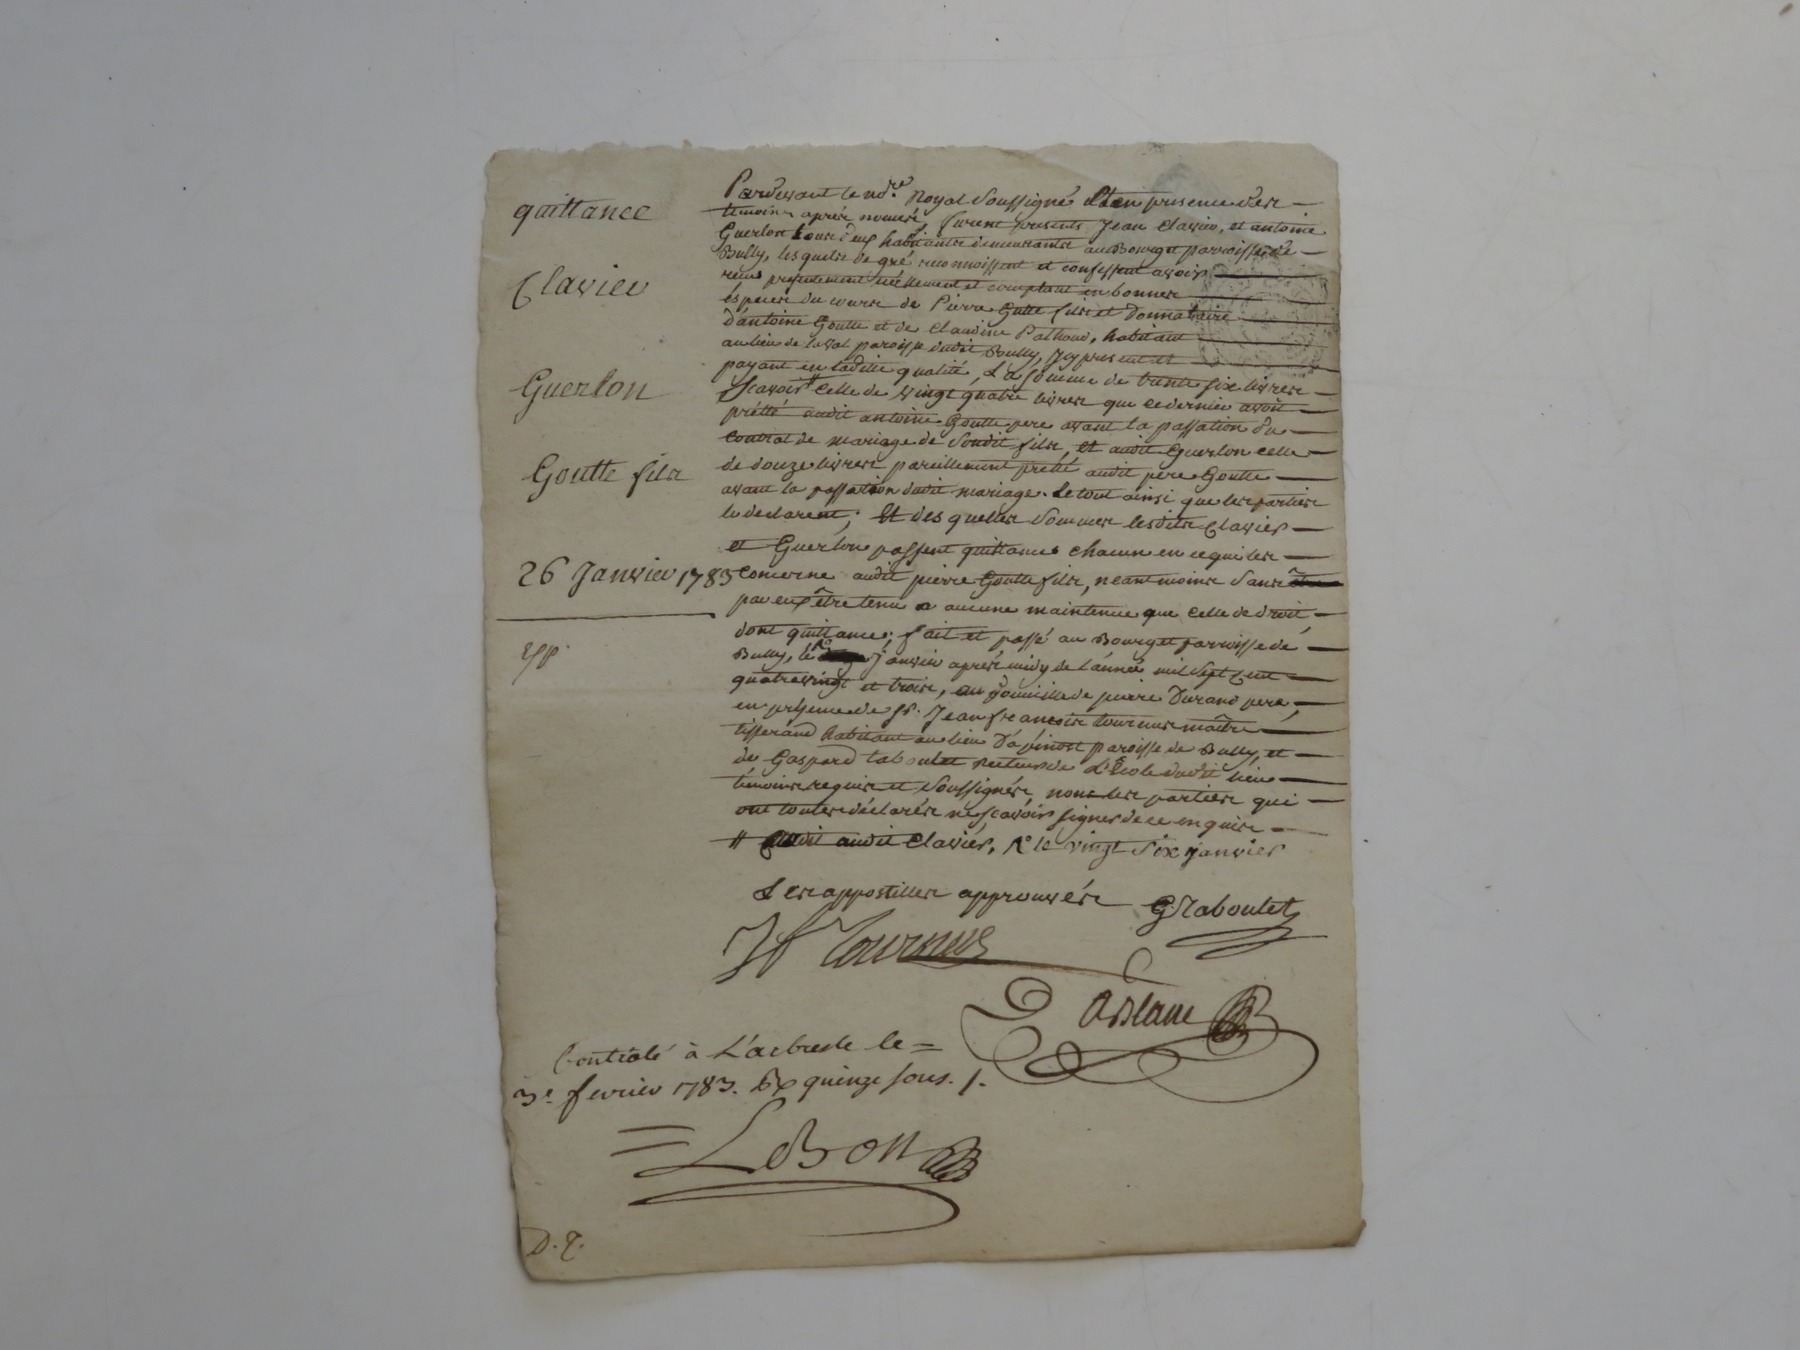 quittance
Clavier
Guerlon
Goutte fils
26 Janvier 1783
Pardevant le no.re Royal Soussigné Et en presence des
temoins aprés només, furent presents Jean Clavier, et antoine
Guerlon tous deux habitants demeurants au Bourg et parroisse de
Bully, lesquels de gré reconnoissent et confessent avoir
reçu presentement réellement et comptant en bonnes
éspeces du cours de Pierre Goutte fils et Donnataire
d'antoine Goutte et de Claudine Pathoud, habitant
au lieu de Laval paroisse dudit Bully, Icy present et
payant en Ladite qualité, La Somme de trente six livres
Scavoir // Celle de vingt quatre livres que ce dernier avoit
prétté audit antoine Goutte pere avant la passation du
Contrat de mariage de Sondit fils, Et audit Guerlon celle
de douze livres pareillement prété audit pere Goutte
avant la passation dudit mariage. Le tout ainsi que les parties
le declarent; Et des quelles Sommes lesdits Clavier
et Guerlon passent quittance chacun en ce qui les
concerne audit pierre Goutte fils, neant moins Sans
par eux être tenu a aucune maintenue que Celle de droit,
dont quittance; fait et passé au Bourg et parroisse de
Bully, le janvier aprés midy de l'année mil Sept Cent
quatrevingt et trois, au domicille de pierre Durand pere,
en presence de Sr. Jean françois tournus maître
tisserand habitant au lieu D'apinost paroisse de Bully, et
de Gaspard taboulet recteur de L'Ecole dudit lieu
témoins requis et Soussignés, non les parties qui
ont toutes déclarés ne scavoir signer de ce enquis
// audit Clavier, le vingt Six janvier
Les appostilles approuvées G. Taboulet
Jf Tournus
Contrôlé à L'arbresle le =
3e. fevrier 1783. quinze sous. /.
LeBon